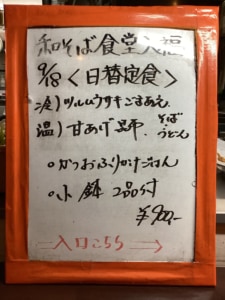 和そば食堂
9/8<日替定食>
冷)ツルムラサキごまあえ
温)甘あげ そば
うどん
○かつおふりかけごはん
○小鉢 2品付
¥900-
入口こちら→